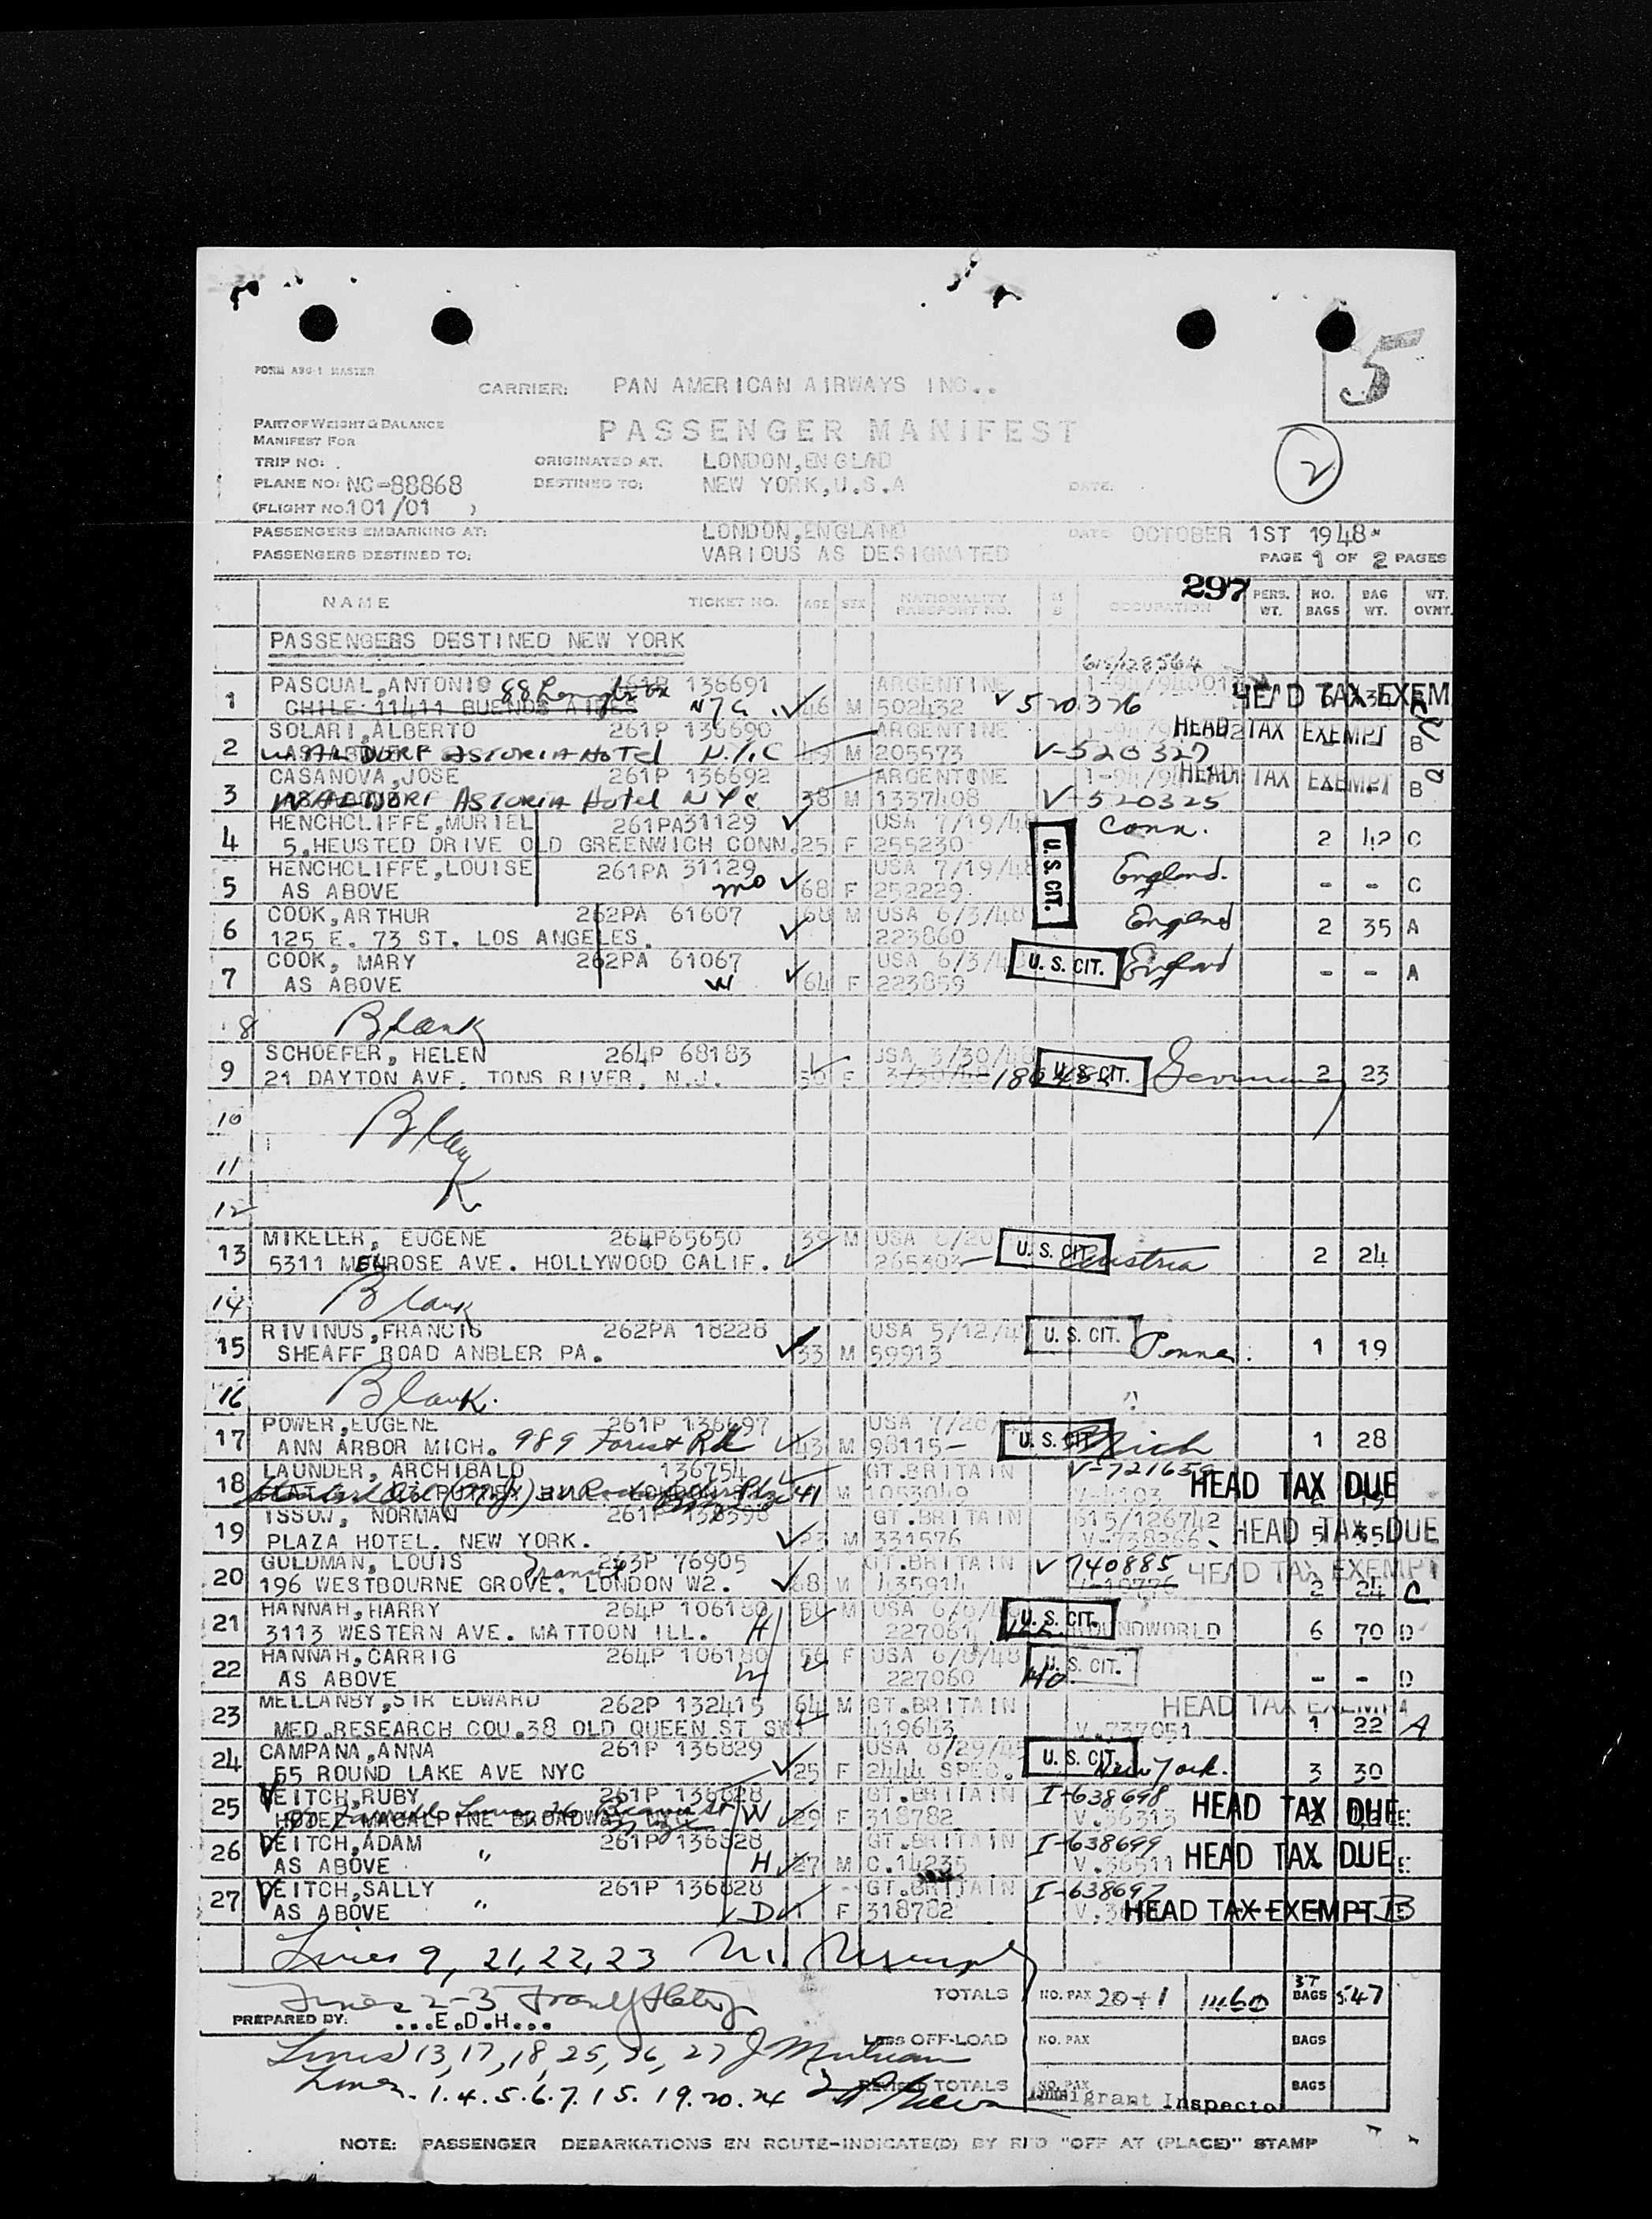 5
FORM A90-1 MASTER
CARRIER: PAN AMERICAN AIRWAYS INC..
PART OF WEIGHT & BALANCE
MANIFEST FOR
PASSENGER MANIFEST
2
TRIP NO: .
ORIGINATED AT. LONDON,ENGLAND
PLANE NO: NC-88868
DESTINED TO: NEW YORK,U.S.A
DATE:
(FLIGHT NO.101/01 )
PASSENGERS EMBARKING AT: LONDON,ENGLAND DATE OCTOBER 1ST 1948
PASSENGERS DESTINED TO: VARIOUS AS DESIGNATED PAGE 1 OF 2 PAGES
297
NAME TICKET NO. AGE SEX NATIONALITY PASSPORT NO. M S OCCUPATION PERS. WT. NO. BAGS BAG WT. WT. OVNT.
PASSENGERS DESTINED NEW YORK
615/128564
PASCUAL,ANTONIO 88 261P 136691 ARGENTINE HEAD TAX EXEM
1 CHILE 11411 BUENOS AIRES NYC 46 M 502432 V 520326
SOLARI,ALBERTO 261P 136690 ARGENTINE HEAD TAX EXEMPT
2 WALDORF ASTORIA HOTEL N.Y.C 49 M 205573 V-520327 B
CASANOVA,JOSE 261P 136692 ARGENTONE HEAD TAX EXEMPT
3 WALDORF ASTORIA Hotel NYC 38 M 1337408 V-520325 B
HENCHCLIFFE,MURIEL 261PA31129 USA 7/19/48 Conn.
4 5,HEUSTED DRIVE OLD GREENWICH CONN. 25 F 255230 U.S. CIT. 2 42 C
HENCHCLIFFE,LOUISE 261PA 31129 USA 7/19/48 England.
5 AS ABOVE mo 68 F 252229 - - C
COOK,ARTHUR 262PA 61607 68 M USA 6/3/48 England
6 125 E. 73 ST. LOS ANGELES. 223860 2 35 A
COOK, MARY 262PA 61067 USA 6/3/4 U.S. CIT. England
7 AS ABOVE W 64 F 223859 - - A
8 Blank
SCHOEFER, HELEN 264P 68183 USA 3/30/48
9 21 DAYTON AVE. TONS RIVER. N.J. 50 F 3/30/48 U.S. CIT. Germany 2 23
10 Blank
11
12
MIKELER, EUGENE 264P65650 39 M USA
13 5311 MELROSE AVE. HOLLYWOOD CALIF. 265303 U.S. CIT. Austria 2 24
14 Blank
RIVINUS,FRANCIS 262PA 18228 USA 5/12/4 U.S. CIT.
15 SHEAFF ROAD ANBLER PA. 33 M 59913 Penna. 1 19
16 Blank.
POWER,EUGENE 261P 136697 USA 7/28/
17 ANN ARBOR MICH. 989 Forest Rd 43 M 98115- U.S. CIT. Mich 1 28
LAUNDER, ARCHIBALD 136754 GT.BRITAIN V-721659 HEAD TAX DUE
18 41 M 1053049
ISSOW, NORMAN 261P 136598 GT.BRITAIN 615/126742
19 PLAZA HOTEL. NEW YORK. 23 M 331576 HEAD TAX DUE 5 35
GOLDMAN, LOUIS Transit 263P 76905 GT.BRITAIN V 740885 HEAD TAX EXEMPT
20 196 WESTBOURNE GROVE. LONDON W2. 68 M 435914 2 24 C
HANNAH,HARRY 264P 106180 M USA 6/8/48 U.S. CIT.
21 3113 WESTERN AVE. MATTOON ILL. H 227061 ILL ROUNDWORLD 6 70 D
HANNAH,CARRIG 264P 106180 56 F USA 6/8/48 U.S. CIT.
22 AS ABOVE W 227060 MO. - - D
MELLANBY,SIR EDWARD 262P 132415 64 M GT.BRITAIN HEAD TAX EXEMPT
23 MED.RESEARCH COU.38 OLD QUEEN ST SW1 419643 V.737051 1 22 A
CAMPANA,ANNA 261P 136829 USA 8/29/45 U.S. CIT.
24 55 ROUND LAKE AVE NYC 25 F 2444 SPEC. New York. 3 30
VEITCH,RUBY 261P 136828 GT.BRITAIN I-638698 HEAD TAX DUE
25 HOTEL MACALPINE BROADWAY W 29 F 318782 V.36313 E
VEITCH,ADAM 261P 136828 GT.BRITAIN I-638699
26 AS ABOVE " H 27 M C.14235 V.36511 HEAD TAX DUE E
VEITCH,SALLY 261P 136828 GT.BRITAIN I-638697
27 AS ABOVE " D F 318782 HEAD TAX EXEMPT B
Lines 9, 21,22,23
Lines 2-3
TOTALS NO. PAX 20+1 1460 37 BAGS 547
PREPARED BY: ...E.D.H...
LESS OFF-LOAD NO. PAX BAGS
Lines 13,17,18,25,26,27
REVISED TOTALS NO. PAX BAGS
Lines. 1.4.5.6.7.15.19.20.24
Immigrant Inspector
NOTE: PASSENGER DEBARKATIONS EN ROUTE-INDICATE(D) BY RED "OFF AT (PLACE)" STAMP